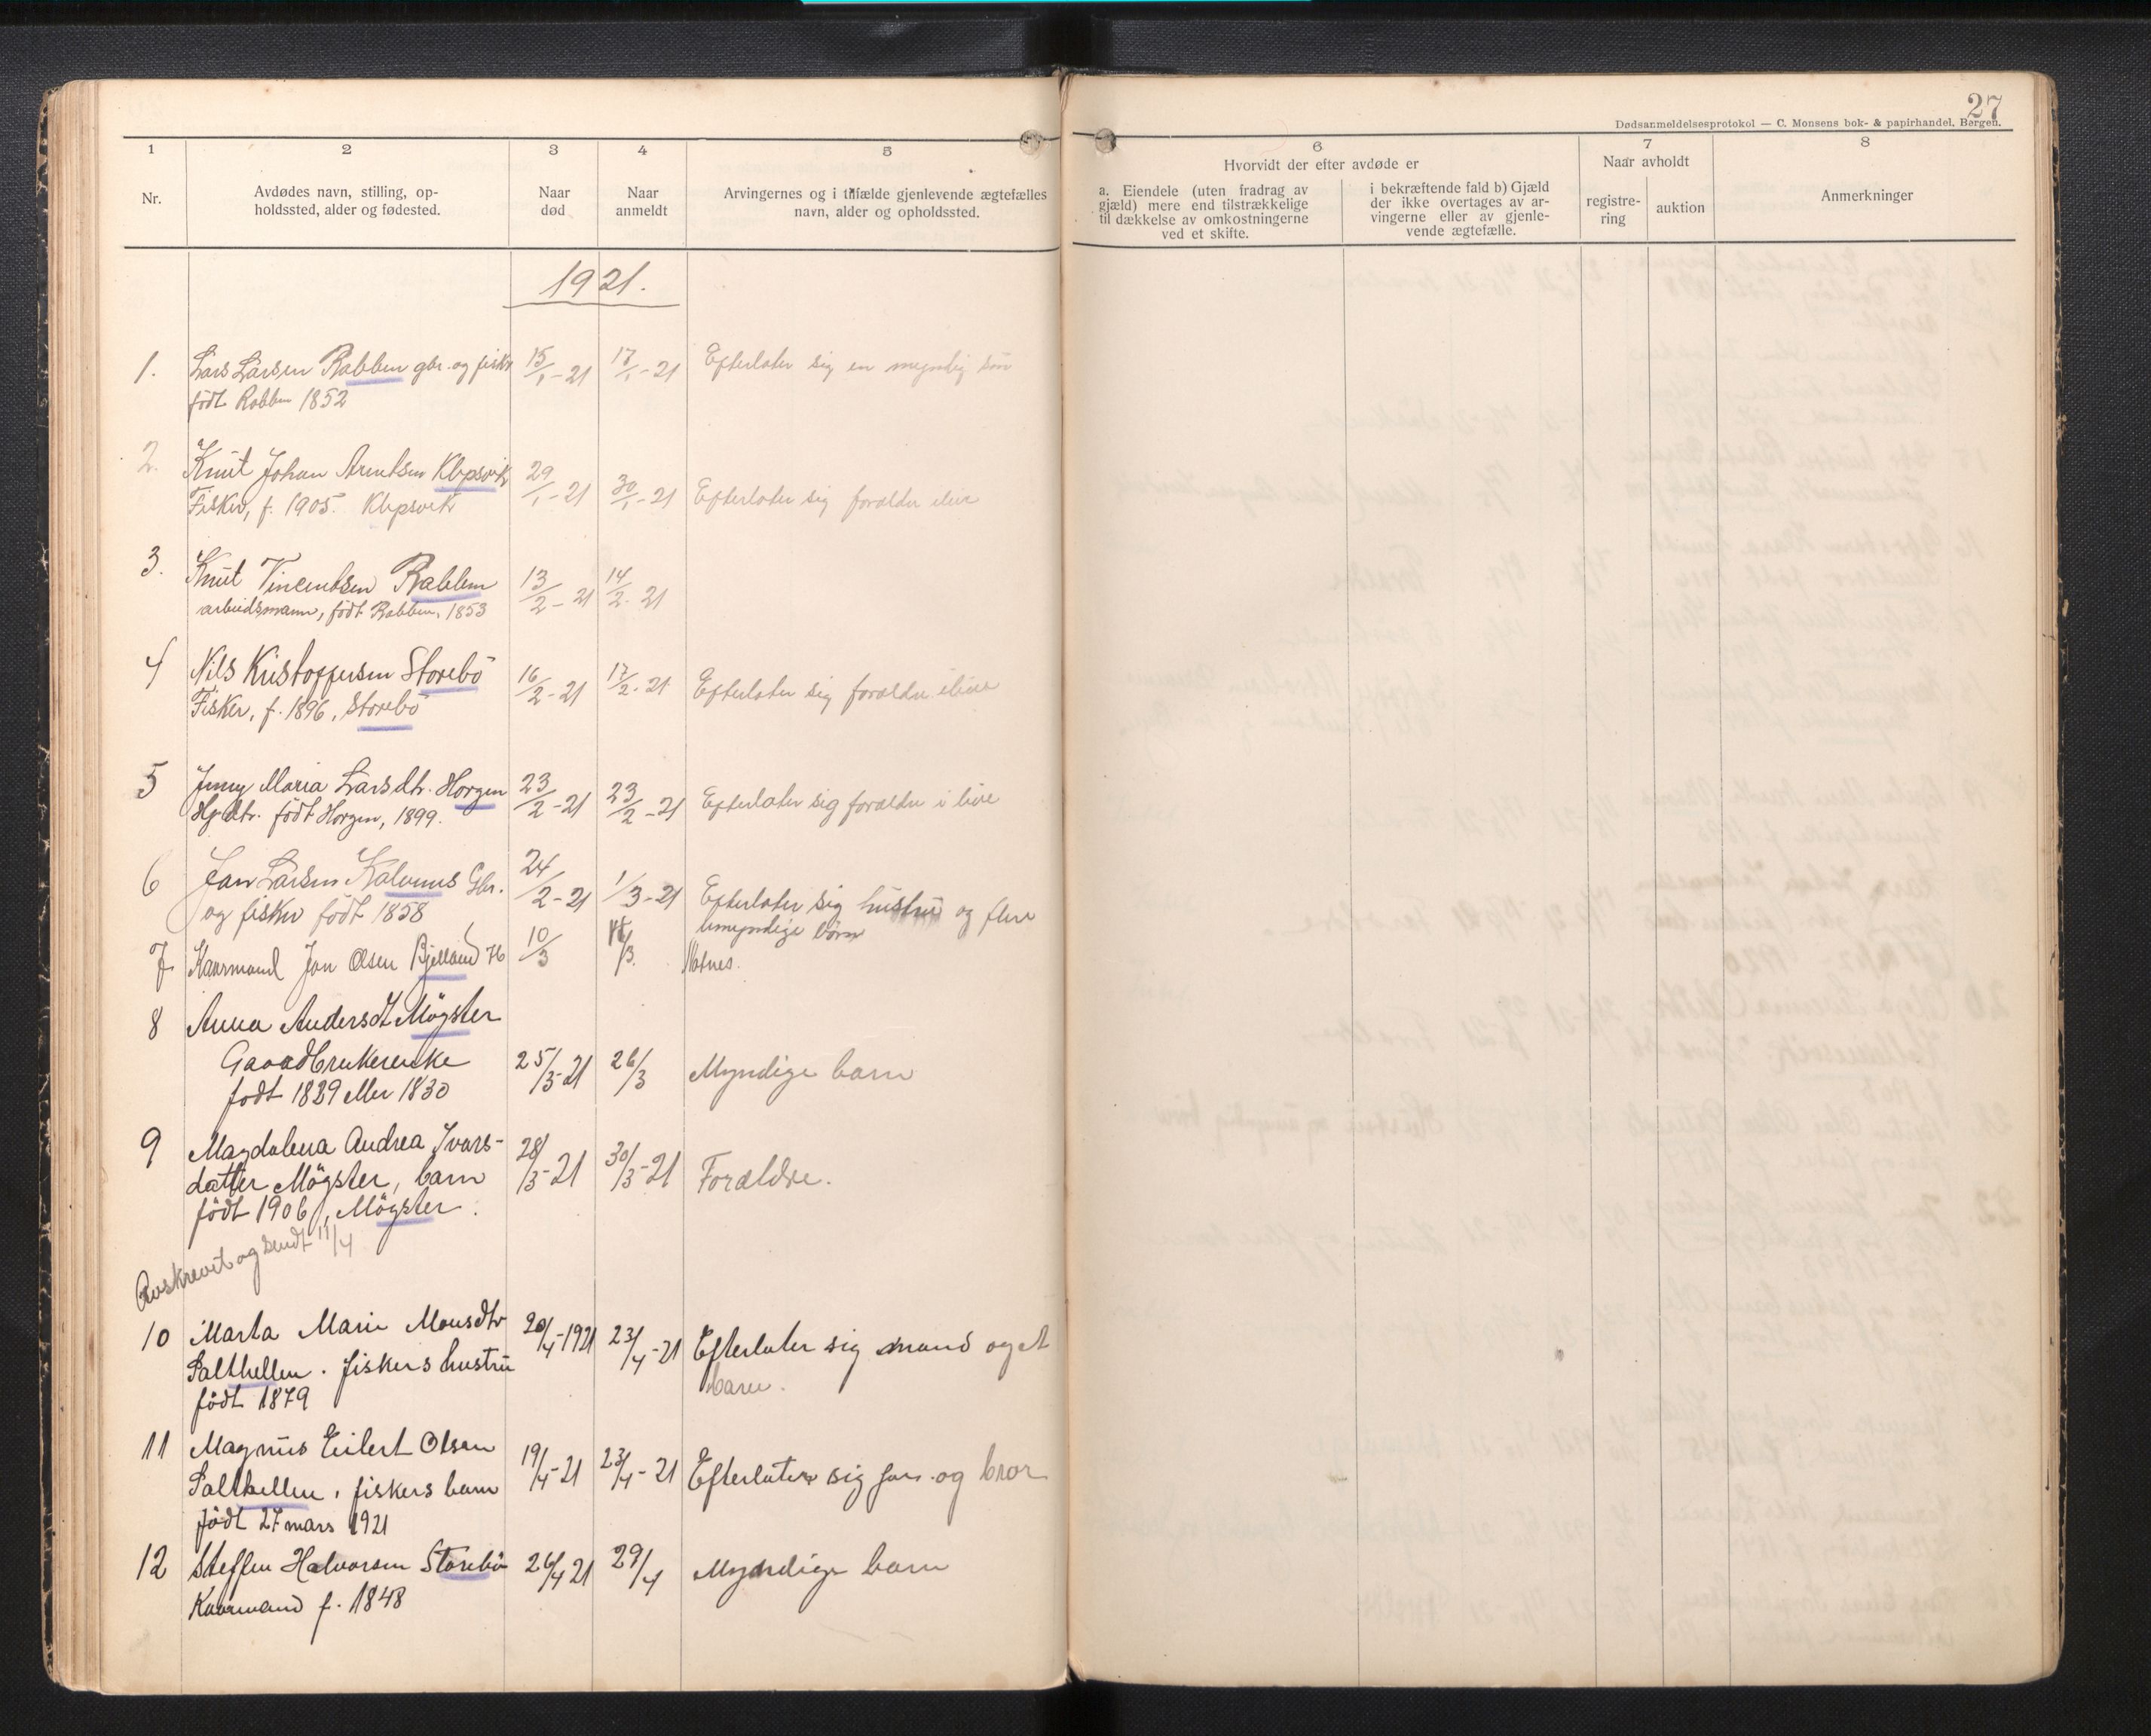 27
Dødsanmeldelsesprotokol — C. Monsens bok- & papirhandel, Bergen.
1 2 3 4 5 6 7 8
Nr.
Avdødes navn, stilling, op-
holdssted, alder og fødested.
Naar
død
Naar
anmeldt
Arvingernes og i tilfælde gjenlevende ægtefælles
navn, alder og opholdssted.
Hvorvidt der efter avdøde er
a. Eiendele (uten fradrag av
gjæld) mere end tilstrækkelige
til dækkelse av omkostningerne
ved et skifte.
i bekræftende fald b) Gjæld
der ikke overtages av ar-
vingerne eller av gjenle-
vende ægtefælle.
Naar avholdt
registre-
ring
auktion
Anmerkninger
1921.
1. Lars Larsen Rabben gbr. og fisker 15/1-21 17/1-21 Efterlater sig en myndig søn
født Rabben 1852
2. Knut Johan Arntsen Klepsvik 29/1-21 30/1-21 Efterlater sig forældre ilive
Fisker, f. 1905. Klepsvik
3. Knut Vincentsen Rabben 13/2-21 14/2-21
arbeidsmann, født Rabben, 1853
4 Nils Kristoffersen Storebö 16/2-21 17/2-21 Efterlater sig forældre ilive
Fisker, f. 1896, Storebö
5 Jenny Maria Larsdtr. Horgen 23/2-21 23/2-21 Efterlater sig forældre i live
født Horgen, 1899.
6 Jan Larsen Kalvenes Gbr. 24/2-21 1/3-21 Efterlater sig hustru og flere
og fisker født 1858 umyndige börn
7 Kaarmand Jan Olsen Bjelland 10/3
8 Anna Andersdt Mögster
Gaardbrukerenke 25/3-21 26/3 Myndige barn
født 1829 eller 1830
9 Magdalena Andrea Ivars- 28/3-21 30/3-21 Forældre.
datter Mögster, barn
født 1906, Mögster.
Avskrevet og sendt 11/4
10 Marta Marie Monsdtr 20/4-1921 23/4-21 Efterlater sig mand og et
Salthellen. fiskers hustru barn.
født 1879
11 Magnus Eilert Olsen 19/4-21 23/4-21 Efterlater sig far og bror
Salthellen, fiskers barn
født 27 mars 1921
12 Steffen Halvorsen Storebö 26/4 21 29/4 Myndige barn
Kaarmand f. 1848